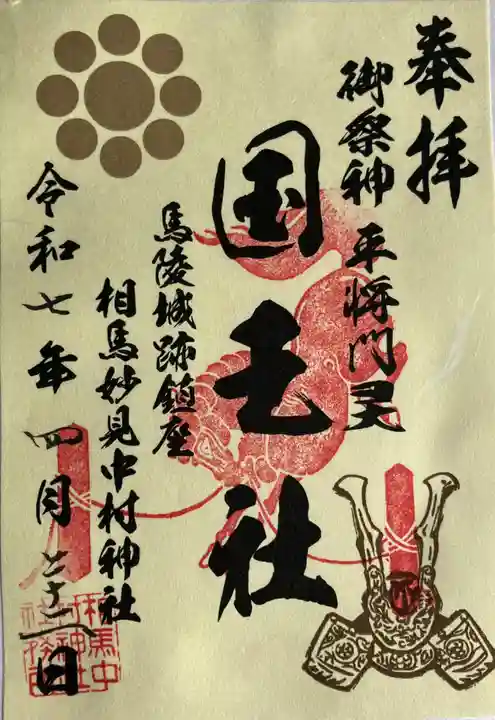 奉拝
御祭神 平将門灵
国王社
馬陵城跡鎮座
相馬妙見中村神社
令和七年四月 日
相馬中
村神社
社務所